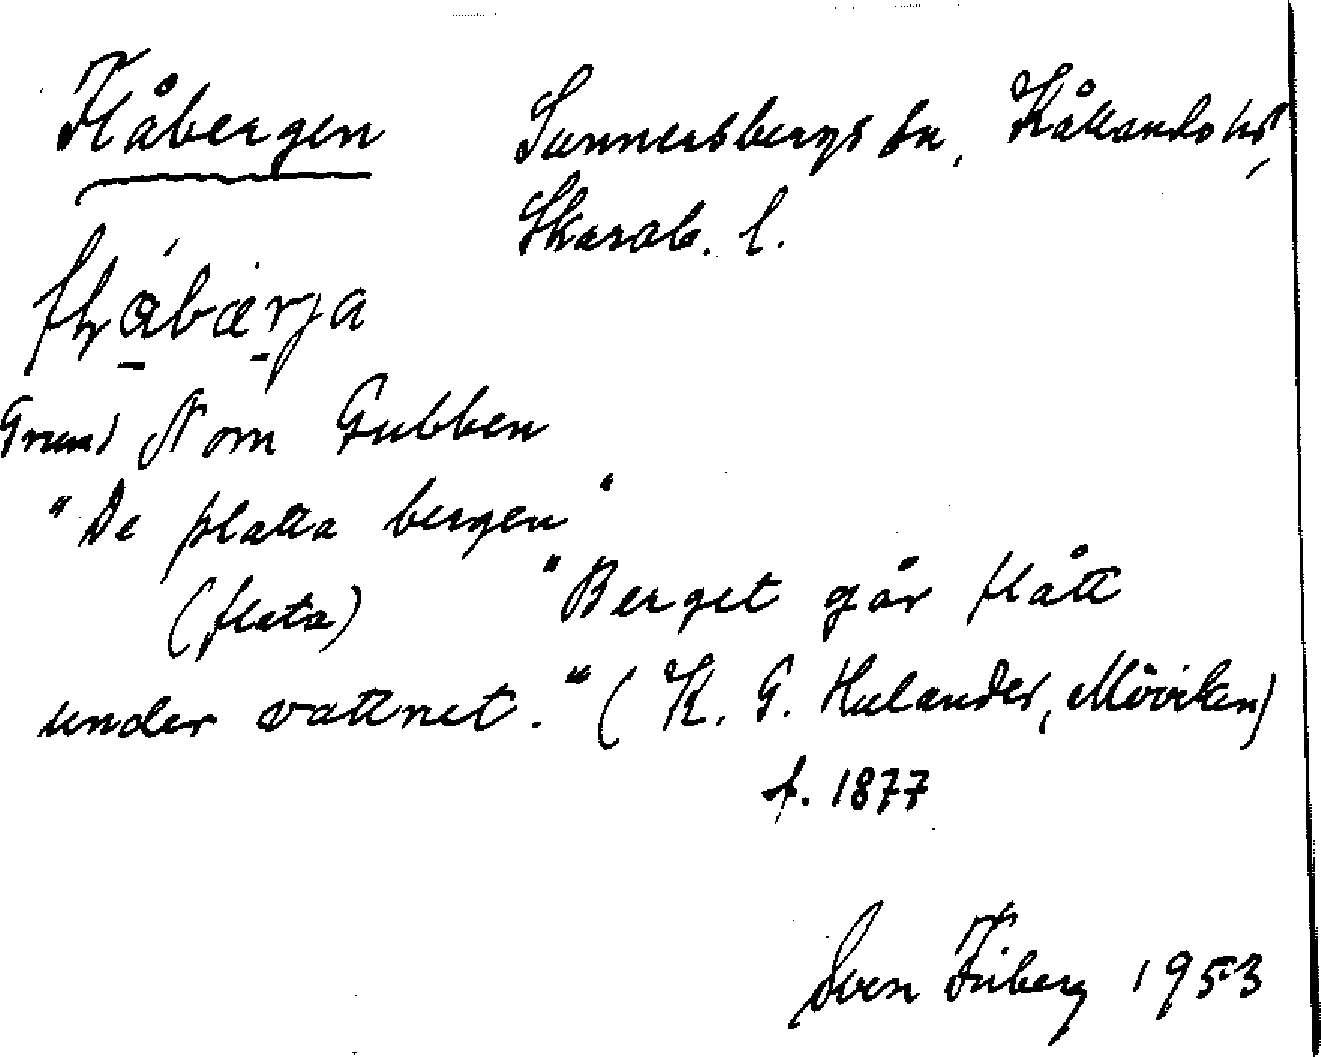 Flåbergen Sunnersbergs sn, Kållands hd,
Skarab. l.
flɑ́bærja
Grund N om Gubben
"De platta bergen"
(flata) "Berget går flått
under vattnet." (K. G. Hulander, Möviken)
f. 1877
Sven Friberg 1953